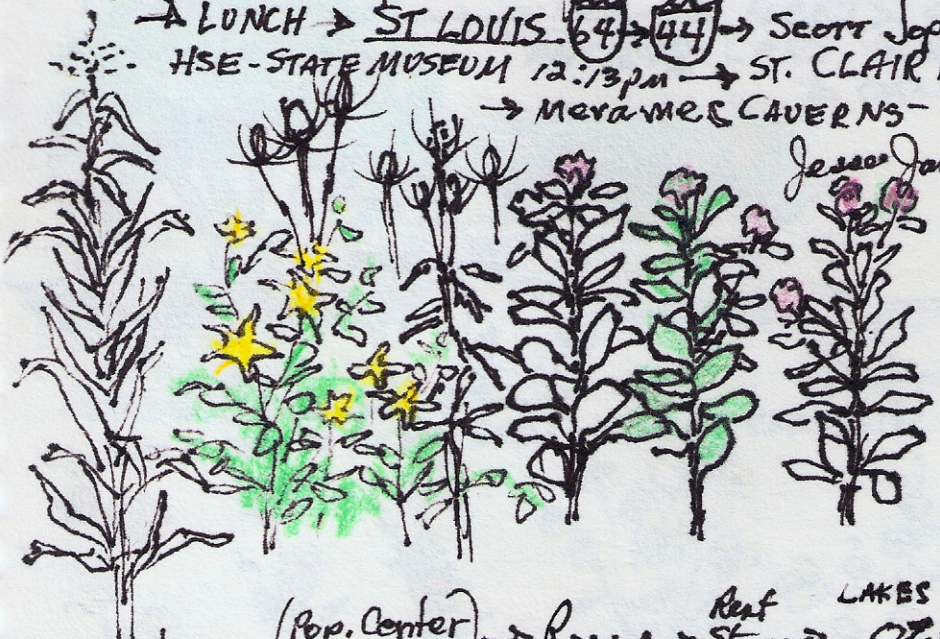 → LUNCH → ST LOUIS 64 → 44 → SCOTT Jop
HSE - STATE MUSEUM 12:13pm → ST. CLAIR
→ Meramec CAVERNS -
Jesse Ja
(Pop. Center)
Rest
LAKES